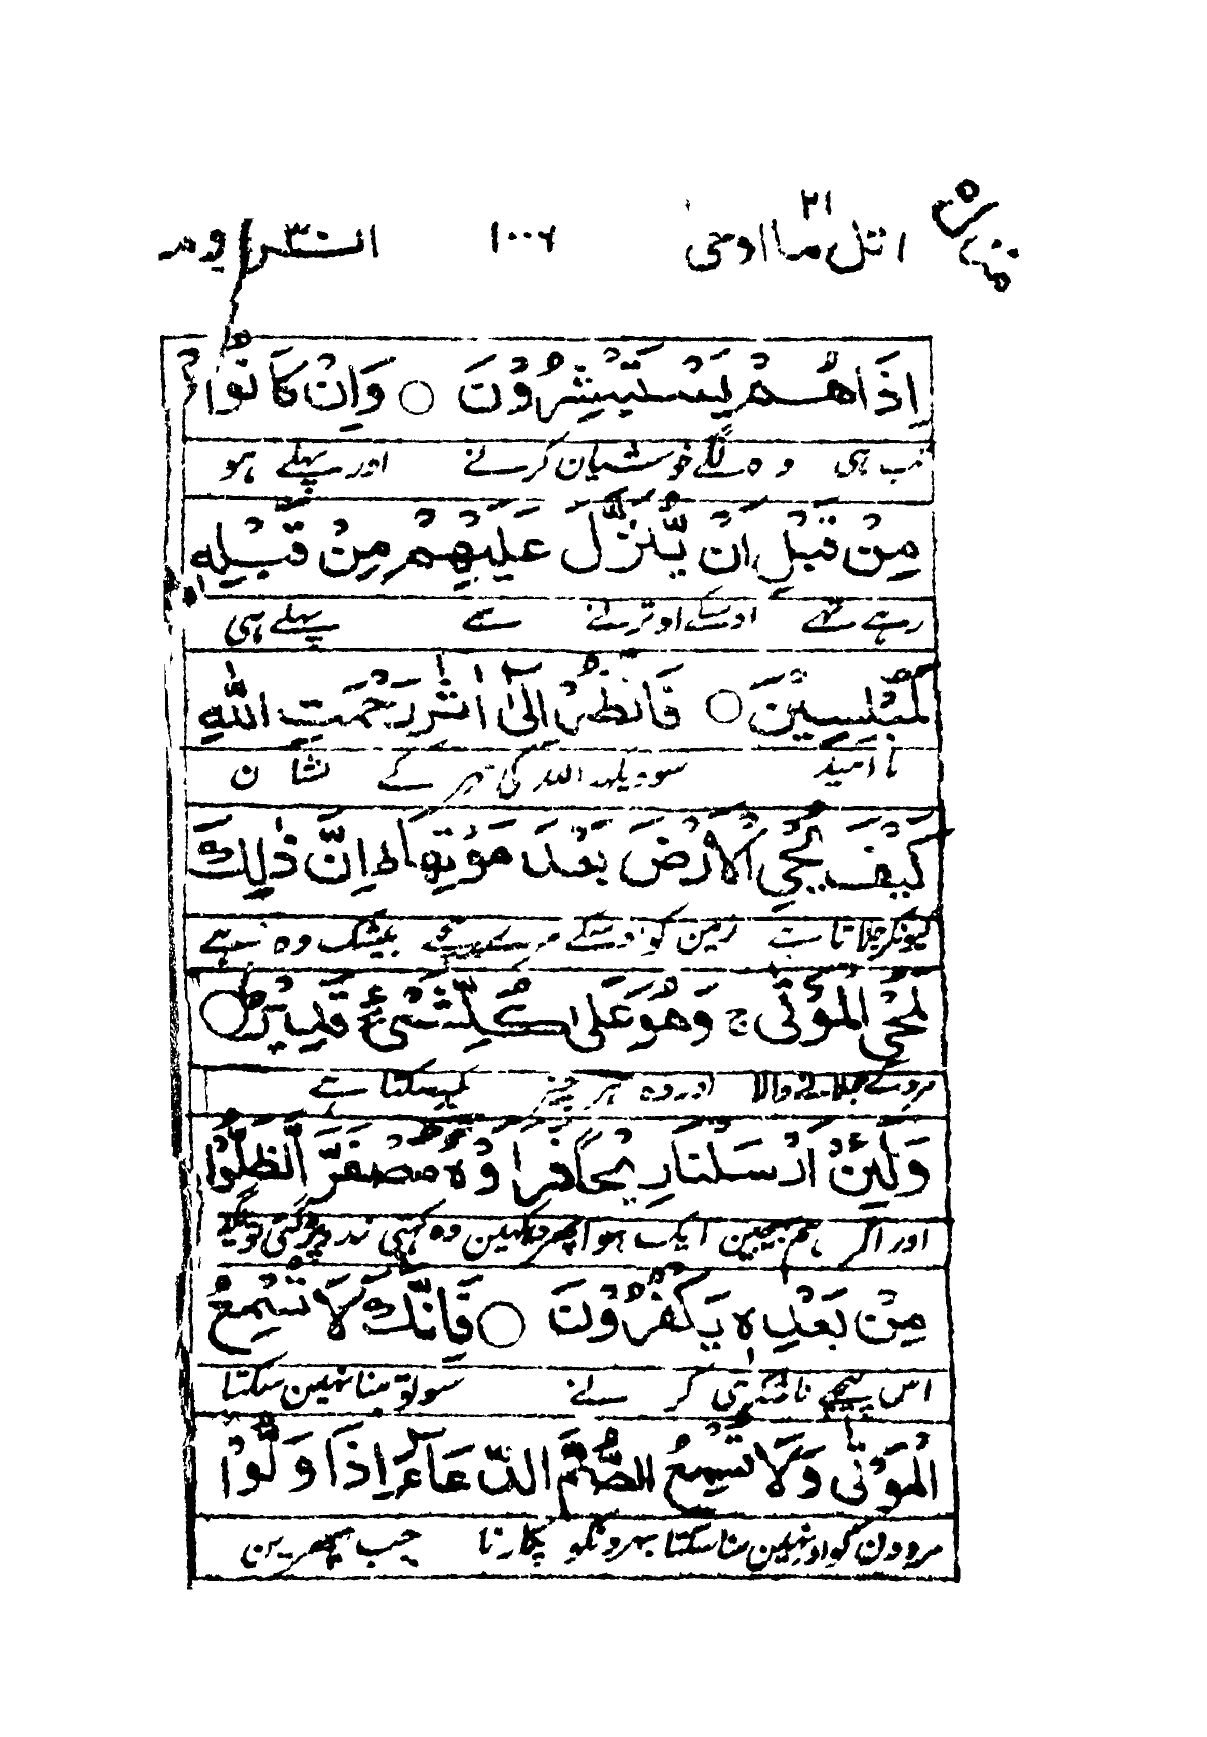 منزل ۵
اتل ما اوحی ۲۱ ۱۰۰۶ الروم ۳۰
اِذَا هُمْ يَسْتَبْشِرُوْنَ ○ وَاِنْ كَانُوْا
تب ہی وہ لگے خوشیان کرنے اور پہلے ہو
مِنْ قَبْلِ اَنْ يُّنَزَّلَ عَلَيْهِمْ مِنْ قَبْلِهٖ
رہے تھے اوسکے اوترنے سے پہلے ہی
لَمُبْلِسِيْنَ ○ فَانْظُرْ اِلٰٓى اٰثٰرِ رَحْمَتِ اللّٰهِ
نا امید سو دیکھہ اللہ کی مہر کے نشان
كَيْفَ يُحْيِ الْاَرْضَ بَعْدَ مَوْتِهَا ط اِنَّ ذٰلِكَ
کیونکر جلاتا ہے زمین کو اوسکے مرے پیچھے بیشک وہ ہے
لَمُحْيِ الْمَوْتٰى ج وَهُوَ عَلٰى كُلِّ شَيْءٍ قَدِيْرٌ ○
مردے جلانے والا اور وہ ہر چیز کر سکتا ہے
وَلَئِنْ اَرْسَلْنَا رِيْحًا فَرَاَوْهُ مُصْفَرًّا لَّظَلُّوْا
اور اگر ہم بھیجین ایک ہوا پھر دیکھین وہ کھیتی زرد پڑ گئی تو لگے
مِنْ بَعْدِهٖ يَكْفُرُوْنَ ○ فَاِنَّكَ لَا تُسْمِعُ
اس پیچھے ناشکری کرنے سو تو سنا نہین سکتا
الْمَوْتٰى وَلَا تُسْمِعُ الصُّمَّ الدُّعَآءَ اِذَا وَلَّوْا
مردون کو اور نہین سنا سکتا بہرونکو پکارنا جب پھرین